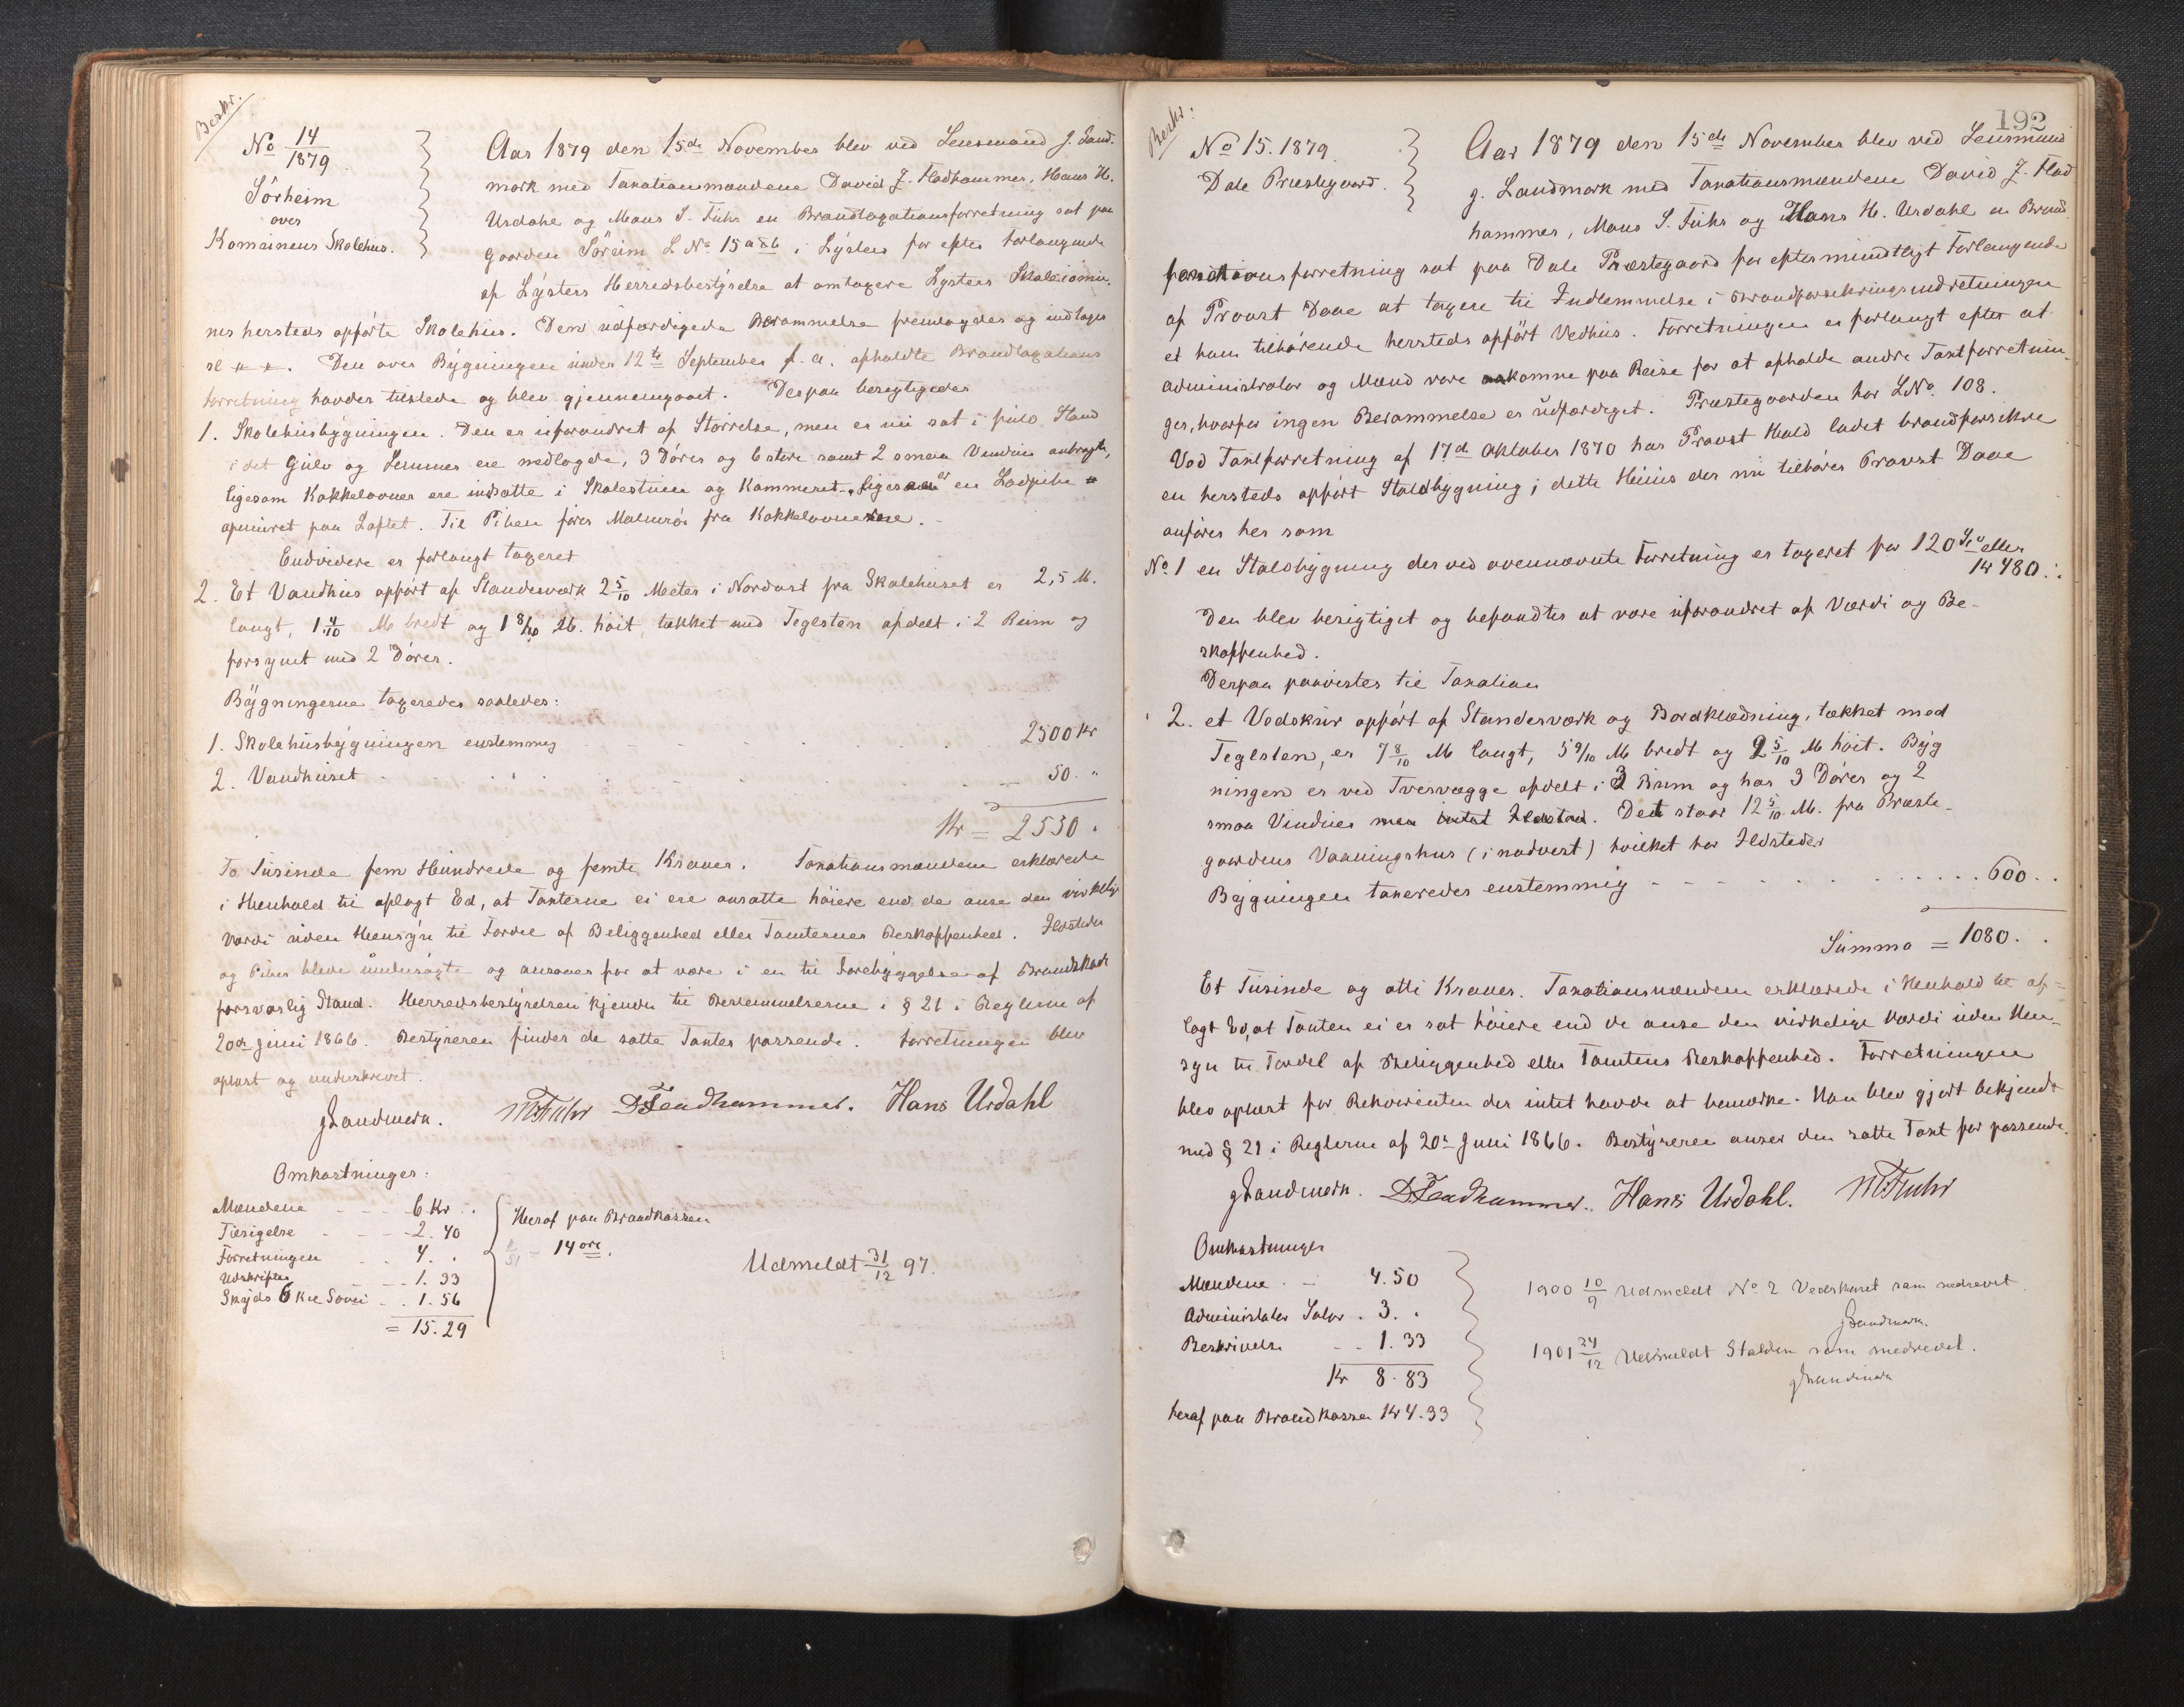 Beskr.
No 14/1879
Sörheim
over
Komünens Skolehus.
Aar 1879 den 15de November blev ved Lensmand J. Land-
mark med Taxationsmændene David J. Fladhammer, Hans H.
Urdahl og Mons S. Fuhr en Brandtaxationsforretning sat paa
gaarden Söreim L No 15 a & b i Lÿster for efter Forlangende
af Lÿsters Herredsbestÿrelse at omtaxere Lysters Skolecomü-
nes hersteds opförte Skolehüs. Den üdfærdigede Berammelse fremlagdes og indtages
sl. Den over Bÿgningen ünder 12te September f. a. afholdte Brandtaxations
forretning havdes tilstede og blev gjennemgaaet. Derpaa besigtigedes
1. Skolehüsbÿgningen. Den er üforandret af Störrelse, men er nü sat i füld Stand
i det Gülv og Lemmer ere nedlagde, 3 Dörer og 6 store samt 2 smaa Vinduer anbragte,
ligesom Kakkelovner ere indsatte i Skolestuen og Kammeret. Ligesaa er en Lodpibe
opmüret paa Loftet. Til Piben förer Malmrör fra Kakkelovnene.
Endvidere er forlangt taxeret
2. Et Vandhüs opfört af Standerværk 2 5/10 Meter i Nordost fra Skolehuset er 2,5 M.
langt, 1 4/10 M bredt og 1 8/10 M. höit, tækket med Teglsten afdelt i 2 Rüm og
forsynet med 2 Dörer.
Bÿgningerne taxeredes saaledes:
1. Skolehüsbÿgningen enstemmig 2500 Kr
2. Vandhüset 50. "
Kr = 2550.
To Tüsinde fem Hündrede og femti Kroner. Taxationsmændene erklærede
i Henhold til aflagt Ed, at Taxterne ei ere ansatte höiere end de anse den virkelige
Værdi üden Hensÿn til Fordel af Beliggenhed eller Tomternes Beskaffenhed. Ildsteder
og Piber bleve ündersögte og ansaaes for at være i en til Forebÿggelse af Brandskade
forsvarlig Stand. Herredsbestÿrelsen kjender til Bestemmelserne i § 21 i Reglerne af
20de Juni 1866. Bestÿreren finder de satte Taxter passende. Forretningen blev
oplæst og underskrevet.
JLandmark. MSFuhr DJFladhammer. Hans Urdahl
Omkostninger:
Mændene 6 Kr
Tilsigelse 2.40
Forretningen 4.
Udskriften 1.33
Skyds 6 Kil Sövei 1.56
= 15.29
Heraf paa Brandkassen
14 öre.
Udmeldt 31/12 97.
192
Beskr.
No 15. 1879.
Dale Præstegaard.
Aar 1879 den 15de November blev ved Lensmand
J. Landmark med Taxationsmændene David J. Flad
hammer, Mons S. Fuhr og Hans H. Urdahl en Brand
taxationsforretning sat paa Dale Præstegaard for efter mündtligt Forlangende
af Provst Daae at taxere til Indlemmelse i Brandforsikringsindretningen
et ham tilhörende hersteds opfört Vedhüs. Forretningen er forlangt efter at
Administrator og Mænd vare ankomne paa Reise for at afholde andre Taxtforretnin-
ger, hvorfor ingen Berammelse er üdfærdiget. Præstegaarden har LNo. 108.
Ved Taxtforretning af 17de Oktober 1870 har Provst Hald ladet brandforsikre
en hersteds opfört Staldbÿgning; dette Hüüs der nü tilhörer Provst Daae
anföres her som
No. 1 en Staldbÿgning der ved ovennævnte Forretning er taxeret for 120 Spd eller
Kr 480.
Den blev besigtiget og befandtes at være üforandret af Værdi og Be-
skaffenhed.
Derpaa paavistes til Taxation
2. et Vedskür opfört af Standerværk og Bordklædning, tækket med
Teglsten, er 7 8/10 M langt, 5 9/10 M bredt og 2 5/10 M höit. Bÿg
ningen er ved Tverrvægge afdelt i 3 Rum og har 3 Dörer og 2
smaa Vinduer men intet Ildsted. Det staar 12 5/10 M. fra Præste-
gaardens Vaaningshus (i nordvest) hvilket har Ildsteder
Bÿgningen taxeredes enstemmig 600.
Summa = 1080.
Et Tüsinde og otti Kroner. Taxationsmændene erklærede i Henhold til af-
lagt Ed, at Taxten ei er sat höiere end de anse den virkelige Værdi uden Hen-
syn til Fordel af Beliggenhed eller Tomtens Beskaffenhed. Forretningen
blev oplæst for Rekvirenten der intet havde at bemærke. Han blev gjort bekjendt
med § 21 i Reglerne af 20de Juni 1866. Bestÿreren anser den satte Taxt for passende.
JLandmark. DJFladhammer. Hans Urdahl. MSFuhr
Omkostninger
Mændene 4.50
Administrator Salær 3.
Beskrivelse 1.33
Kr 8.83
heraf paa Brandkassen Kr 4.33
1900 10/9 Udmeldt No 2 Vedskuret som nedrevet.
JLandmark.
1901 24/12 Udmeldt Stalden som nedrevet.
JLandmark